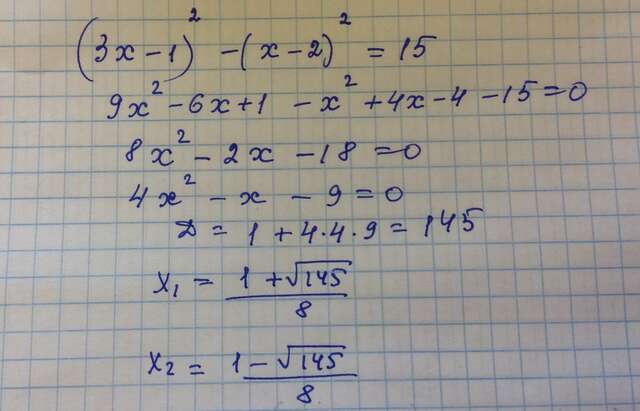 (3x-1)² -(x-2)² = 15
9x² -6x+1 -x² +4x-4 -15=0
8x² - 2x -18 =0
4x² - x - 9 = 0
D = 1 + 4·4·9 = 145
x₁ = (1 + √145)/8
x₂ = (1 - √145)/8